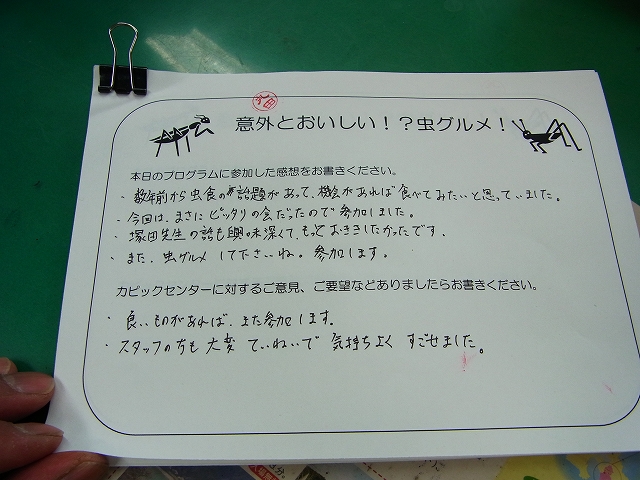 意外とおいしい！？虫グルメ！
本日のプログラムに参加した感想をお書きください。
・数年前から虫食の話題があって、機会があれば食べてみたいと思っていました。
・今回は、まさにピッタリの会だったので参加しました。
・塚田先生の話も興味深くて、もっとおききしたかったです。
・また、虫グルメ して下さいね。参加します。
カピックセンターに対するご意見、ご要望などありましたらお書きください。
・良いものがあれば、また参加します。
・スタッフの方も大変 ていねいで 気持ちよく すごせました。